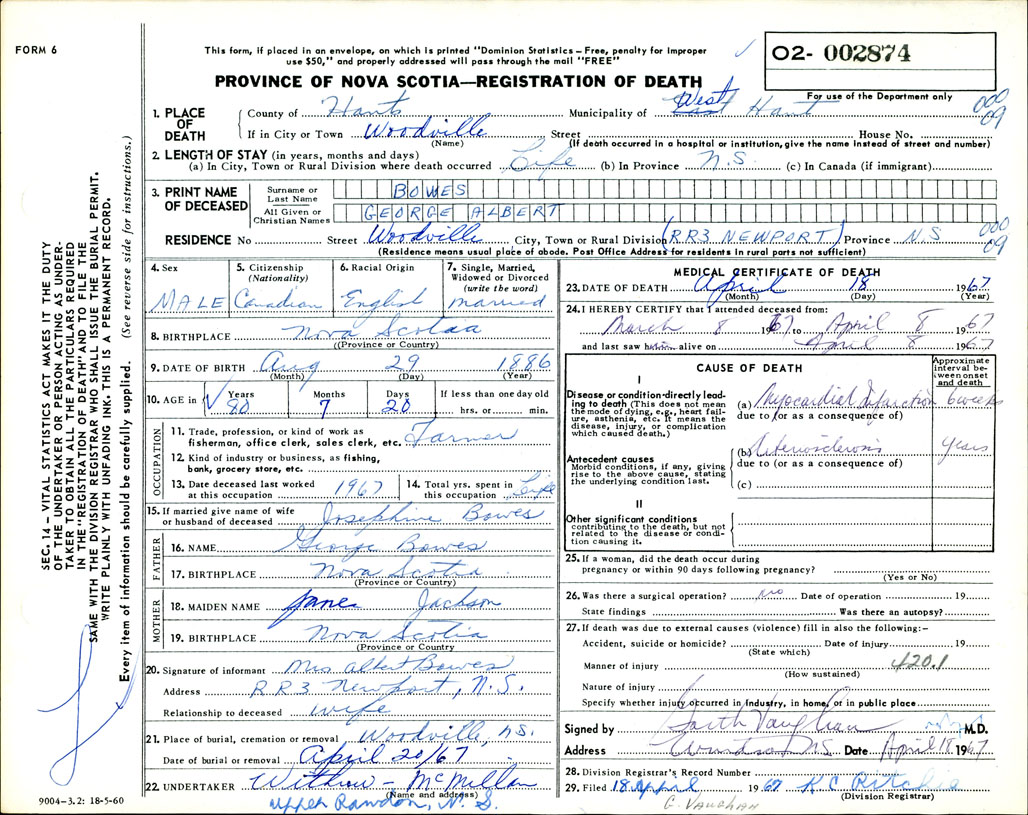 FORM 6
This form, if placed in an envelope, on which is printed "Dominion Statistics – Free, penalty for improper
use $50," and properly addressed will pass through the mail "FREE"
02- 002874
PROVINCE OF NOVA SCOTIA—REGISTRATION OF DEATH
For use of the Department only
000
09
1. PLACE OF DEATH
County of Hants Municipality of West East Hants
If in City or Town Woodville Street House No.
(Name) (If death occurred in a hospital or institution, give the name instead of street and number)
2. LENGTH OF STAY (in years, months and days)
(a) In City, Town or Rural Division where death occurred Life (b) In Province N.S. (c) In Canada (if immigrant)
3. PRINT NAME OF DECEASED
Surname or Last Name BOWES
All Given or Christian Names GEORGE ALBERT
RESIDENCE No Street Woodville City, Town or Rural Division (RR3 NEWPORT) Province NS
000
09
(Residence means usual place of abode. Post Office Address for residents in rural parts not sufficient)
4. Sex MALE
5. Citizenship (Nationality) Canadian
6. Racial Origin English
7. Single, Married, Widowed or Divorced (write the word) married
8. BIRTHPLACE Nova Scotia
(Province or Country)
9. DATE OF BIRTH Aug 29 1886
(Month) (Day) (Year)
10. AGE in Years 80 Months 7 Days 20 If less than one day old hrs. or min.
OCCUPATION
11. Trade, profession, or kind of work as
fisherman, office clerk, sales clerk, etc. Farmer
12. Kind of industry or business, as fishing,
bank, grocery store, etc.
13. Date deceased last worked at this occupation 1967
14. Total yrs. spent in this occupation Life
15. If married give name of wife or husband of deceased Josephine Bowes
FATHER
16. NAME George Bowes
17. BIRTHPLACE Nova Scotia
(Province or Country)
MOTHER
18. MAIDEN NAME Jane Jackson
19. BIRTHPLACE Nova Scotia
(Province or Country)
20. Signature of informant Mrs Albert Bowes
Address RR3 Newport, N.S.
Relationship to deceased wife
21. Place of burial, cremation or removal Woodville, NS.
Date of burial or removal April 20/67
22. UNDERTAKER Withrow - McMillan
(Name and address)
Upper Rawdon, N.S.
9004–3.2: 18-5-60
MEDICAL CERTIFICATE OF DEATH
23. DATE OF DEATH April 18 1967
(Month) (Day) (Year)
24. I HEREBY CERTIFY that I attended deceased from:
March 8 1967 to April 8 1967
and last saw alive on April 8 1967
CAUSE OF DEATH
Approximate interval between onset and death
I
Disease or condition directly leading to death (This does not mean the mode of dying, e.g., heart failure, asthenia, etc. It means the disease, injury, or complication which caused death.)
(a) Myocardial Infarction 6 weeks
due to (or as a consequence of)
Antecedent causes
Morbid conditions, if any, giving rise to the above cause, stating the underlying condition last.
(b) Arteriosclerosis years
due to (or as a consequence of)
(c)
II
Other significant conditions
contributing to the death, but not related to the disease or condition causing it.
25. If a woman, did the death occur during
pregnancy or within 90 days following pregnancy?
(Yes or No)
26. Was there a surgical operation? No Date of operation 19
State findings Was there an autopsy?
27. If death was due to external causes (violence) fill in also the following:–
Accident, suicide or homicide? Date of injury 19
(State which)
Manner of injury 420.1
(How sustained)
Nature of injury
Specify whether injury occurred in industry, in home, or in public place
Signed by Garth Vaughan M.D.
Address Windsor NS Date April 18 1967
28. Division Registrar's Record Number
29. Filed 18 April 1967 K C Ritchie
(Division Registrar)
G. VAUGHAN
SEC. 14 – VITAL STATISTICS ACT MAKES IT THE DUTY
OF THE UNDERTAKER OR PERSON ACTING AS UNDER-
TAKER TO OBTAIN ALL THE PARTICULARS REQUIRED
IN THE "REGISTRATION OF DEATH" AND TO FILE THE
SAME WITH THE DIVISION REGISTRAR WHO SHALL ISSUE THE BURIAL PERMIT.
WRITE PLAINLY WITH UNFADING INK. THIS IS A PERMANENT RECORD.
Every item of information should be carefully supplied. (See reverse side for instructions.)